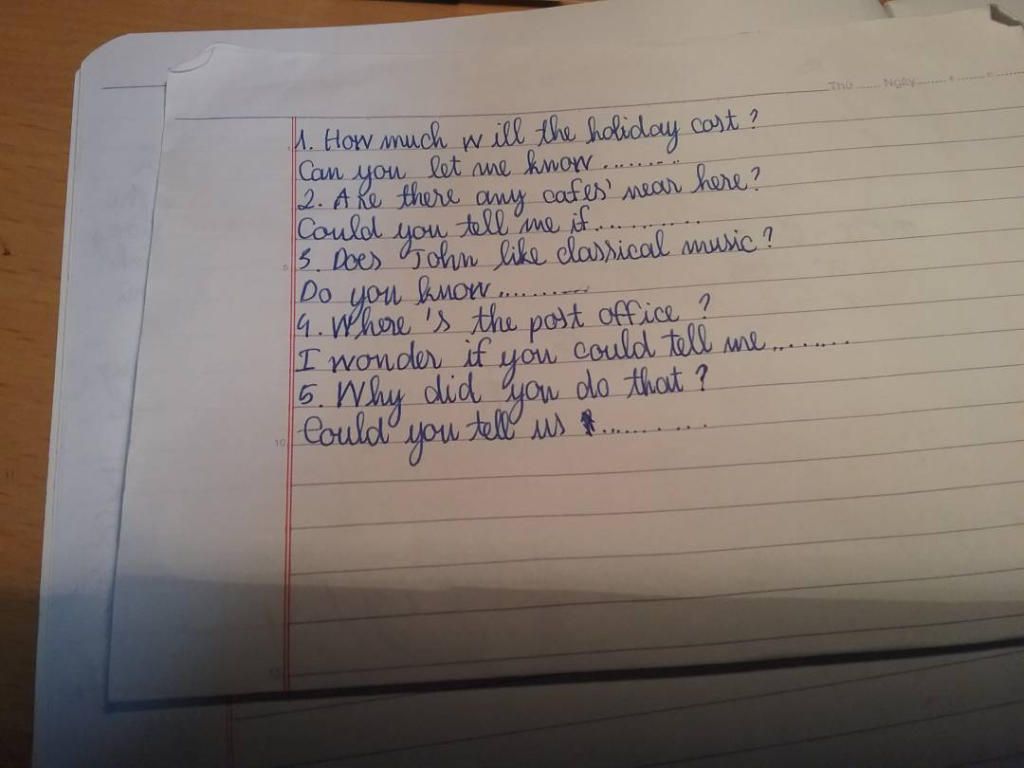 Thứ ...... Ngày ....... / ....... / .......
1. How much will the holiday cost ?
Can you let me know ........
2. Are there any cafes' near here?
Could you tell me if ............
3. Does John like classical music ?
Do you know ..........
4. Where 's the post office ?
I wonder if you could tell me ........
5. Why did you do that ?
Could you tell us ..........
10
15